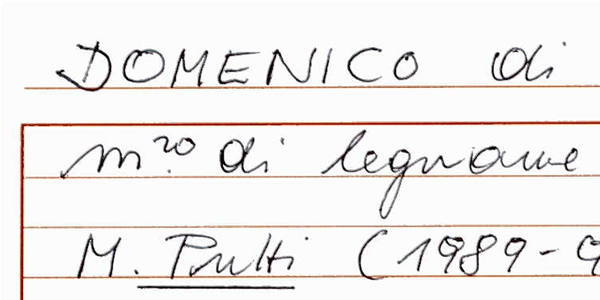 DOMENICO di
m.ro di legname
M. Prutti (1989-9